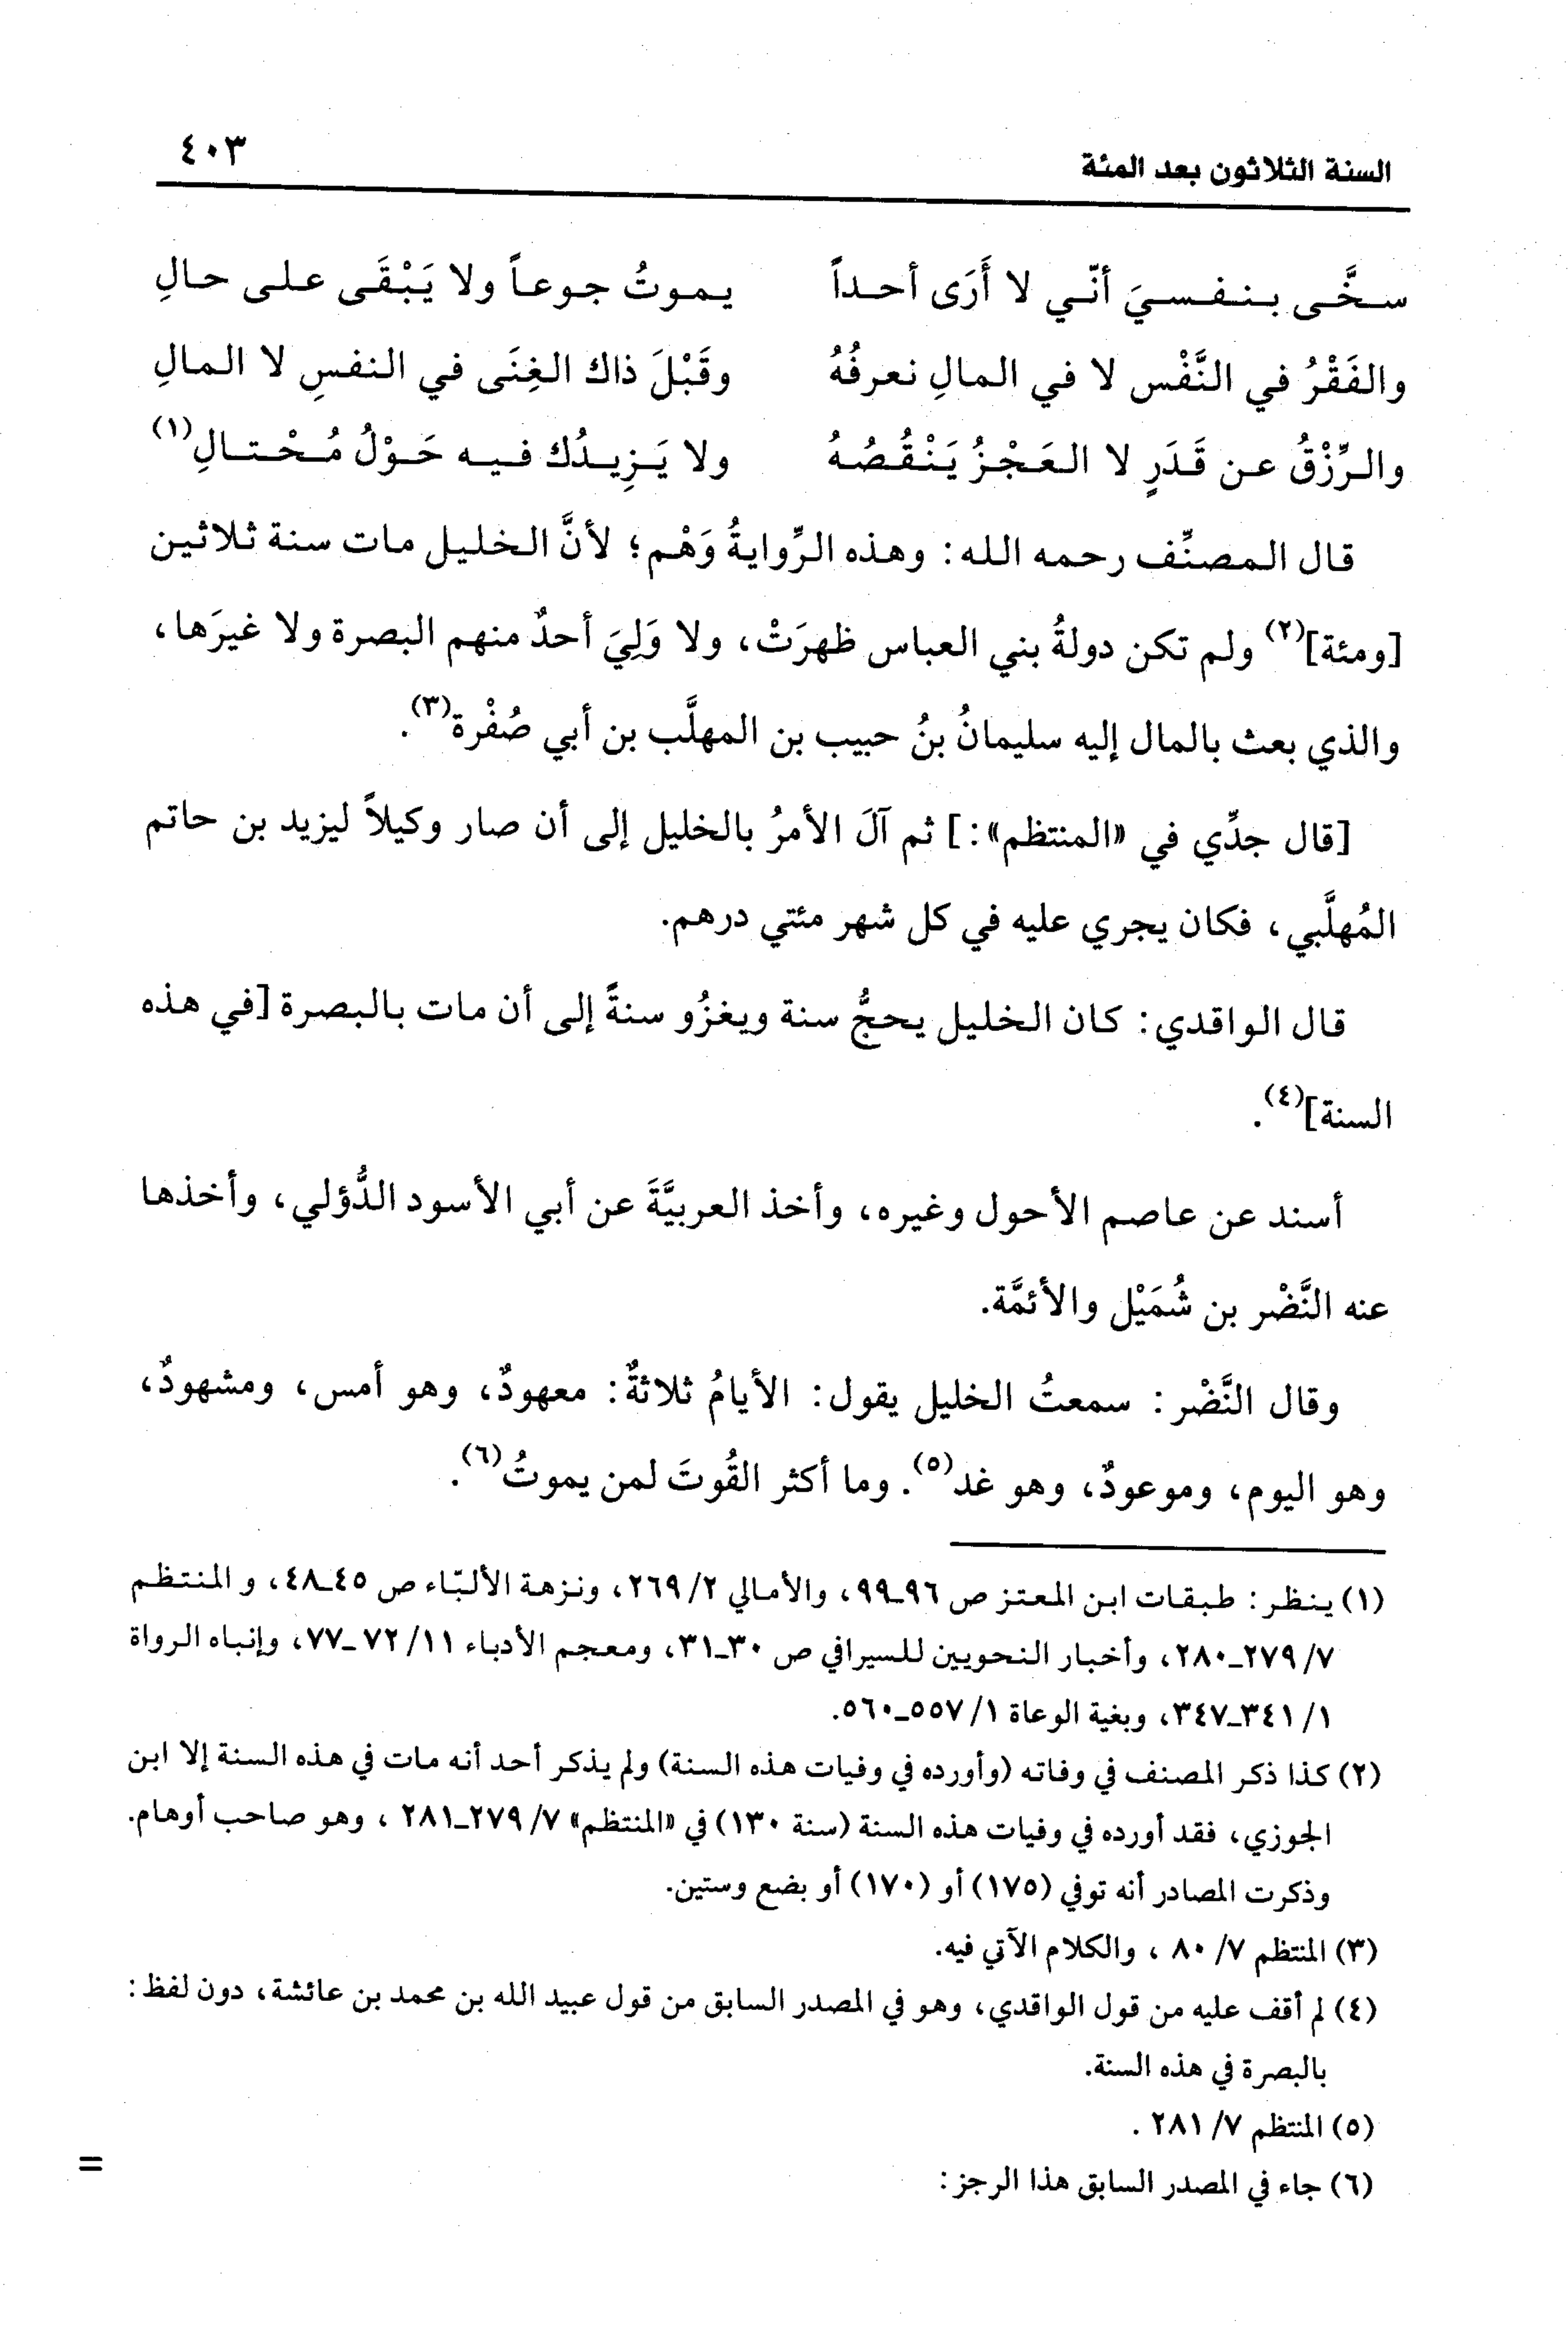 السنة الثلاثون بعد المئة ٤٠٣
سخَّى بنفسيَ أنّي لا أَرَى أحداً يموتُ جوعاً ولا يَبْقَى على حالِ
والفَقْرُ في النَّفْس لا في المالِ نعرفُهُ وقَبْلَ ذاك الغِنَى في النفسِ لا المالِ
والرِّزْقُ عن قَدَرٍ لا العَجْزُ يَنْقُصُهُ ولا يَزِيدُك فيه حَوْلُ مُحْتالِ(١)
قال المصنِّف رحمه الله: وهذه الرِّوايةُ وَهْم؛ لأنَّ الخليل مات سنة ثلاثين
[ومئة](٢) ولم تكن دولةُ بني العباس ظهرَتْ، ولا وَلِيَ أحدٌ منهم البصرة ولا غيرَها،
والذي بعث بالمال إليه سليمانُ بنُ حبيب بن المهلَّب بن أبي صُفْرة(٣).
[قال جدِّي في «المنتظم»:] ثم آلَ الأمرُ بالخليل إلى أن صار وكيلاً ليزيد بن حاتم
المُهلَّبي، فكان يجري عليه في كل شهر مئتي درهم.
قال الواقدي: كان الخليل يحجُّ سنة ويغزُو سنةً إلى أن مات بالبصرة [في هذه
السنة](٤).
أسند عن عاصم الأحول وغيره، وأخذ العربيَّةَ عن أبي الأسود الدُّؤلي، وأخذها
عنه النَّضْر بن شُمَيْل والأئمَّة.
وقال النَّضْر: سمعتُ الخليل يقول: الأيامُ ثلاثةٌ: معهودٌ، وهو أمس، ومشهودٌ،
وهو اليوم، وموعودٌ، وهو غد(٥). وما أكثر القُوتَ لمن يموتُ(٦).
(١) ينظر: طبقات ابن المعتز ص ٩٦ـ٩٩، والأمالي ٢/ ٢٦٩، ونزهة الألبّاء ص ٤٥ـ٤٨، والمنتظم
٧/ ٢٧٩ـ٢٨٠، وأخبار النحويين للسيرافي ص ٣٠ـ٣١، ومعجم الأدباء ١١/ ٧٢ـ٧٧، وإنباه الرواة
١/ ٣٤١ـ٣٤٧، وبغية الوعاة ١/ ٥٥٧ـ٥٦٠.
(٢) كذا ذكر المصنف في وفاته (وأورده في وفيات هذه السنة) ولم يذكر أحد أنه مات في هذه السنة إلا ابن
الجوزي، فقد أورده في وفيات هذه السنة (سنة ١٣٠) في «المنتظم» ٧/ ٢٧٩ـ٢٨١ ، وهو صاحب أوهام.
وذكرت المصادر أنه توفي (١٧٥) أو (١٧٠) أو بضع وستين.
(٣) المنتظم ٧/ ٨٠ ، والكلام الآتي فيه.
(٤) لم أقف عليه من قول الواقدي، وهو في المصدر السابق من قول عبيد الله بن محمد بن عائشة، دون لفظ:
بالبصرة في هذه السنة.
(٥) المنتظم ٧/ ٢٨١ .
(٦) جاء في المصدر السابق هذا الرجز: =